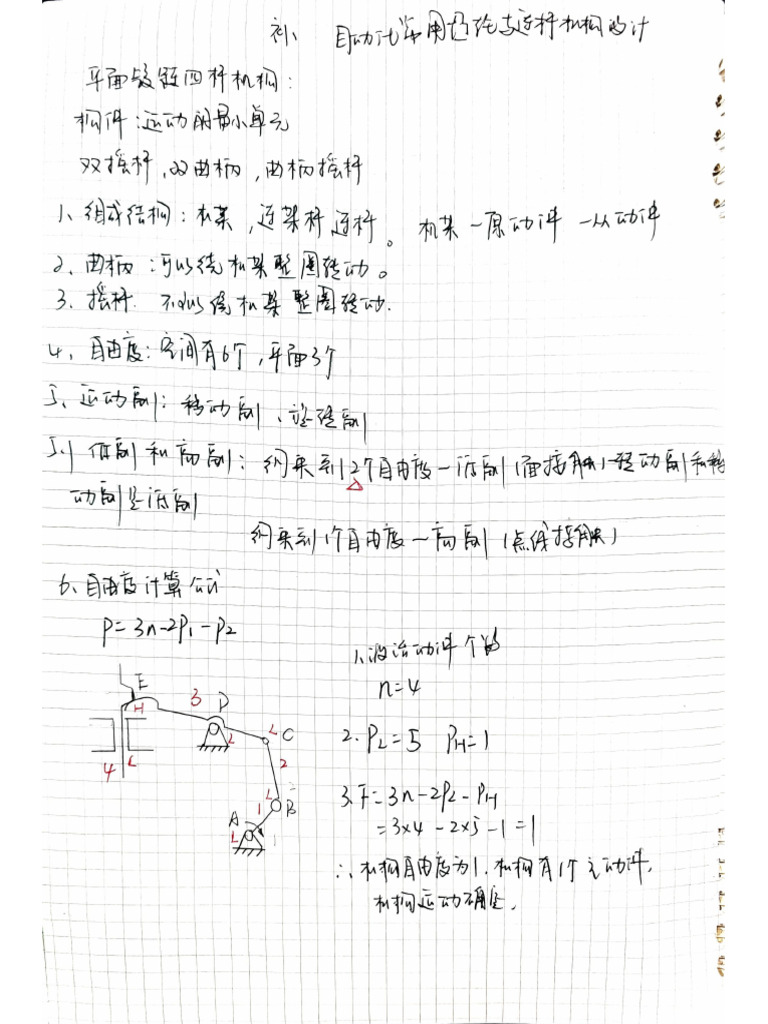 补、 自动化常用凸轮与连杆机构设计
平面铰链四杆机构：
构件：运动的最小单元
双摇杆，双曲柄，曲柄摇杆
1、组成结构：机架，连架杆，连杆。 机架－原动件－从动件
2、曲柄：可以绕机架整圈转动。
3、摇杆 不可以绕机架整圈转动．
4、自由度：空间有6个，平面3个
5、运动副：移动副、旋转副
5.1 低副和高副：约束到2个自由度－低副（面接触）－转动副和移
动副是低副
约束到1个自由度－高副（点线接触）
6、自由度计算公式
P=3n-2P₁-P₂
1、活动件个数
n=4
2. PL=5 PH=1
3. F=3n-2PL-PH
=3×4-2×5-1=1
∴机构自由度为1．机构有1个主动件，
机构运动确定．
E
H
3
D
L
L
C
2
4
L
L
B
1
A
L